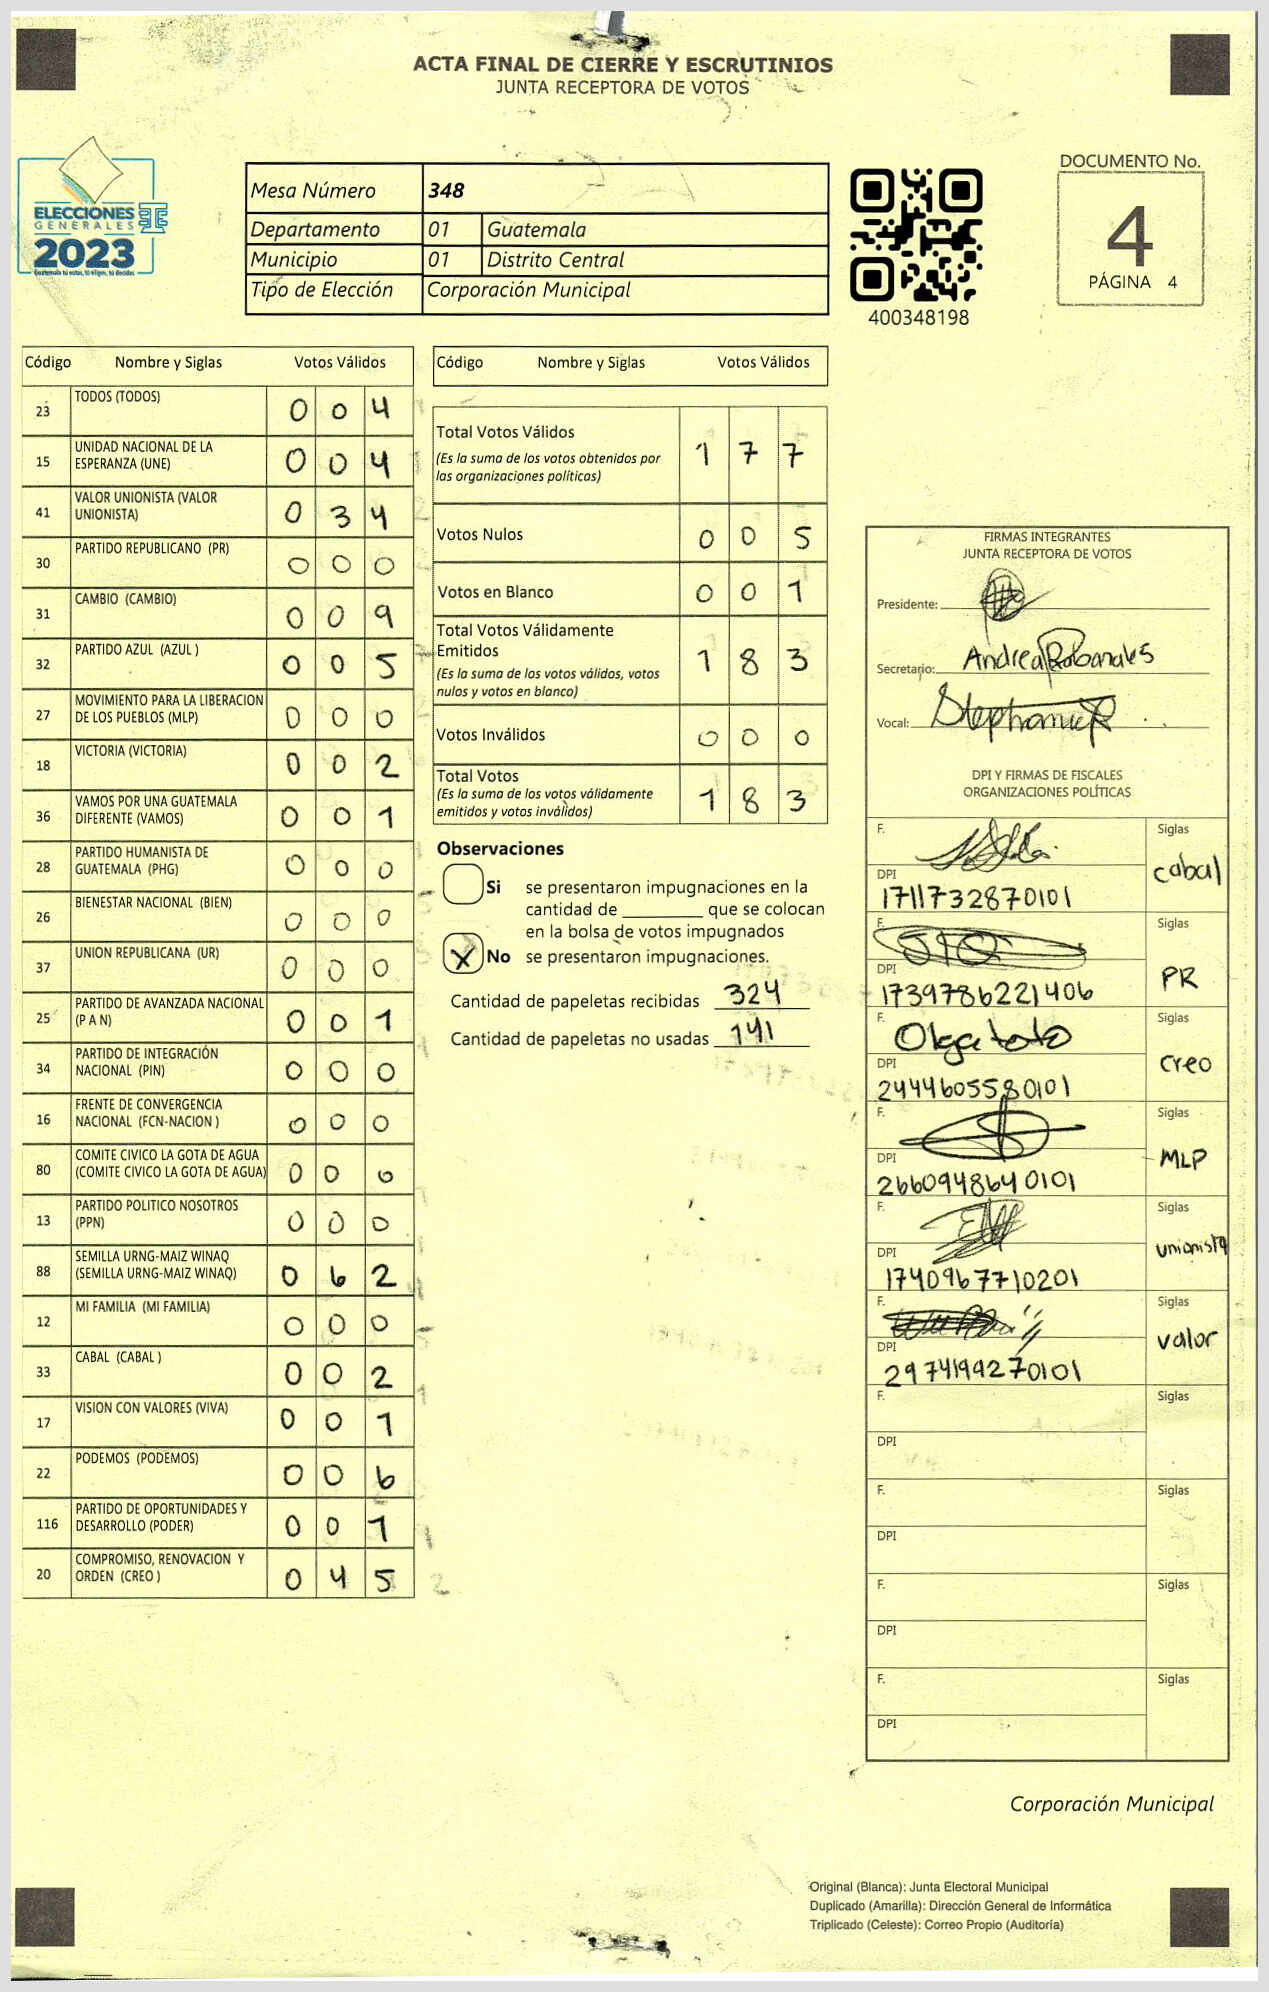 ACTA FINAL DE CIERRE Y ESCRUTINIOS
JUNTA RECEPTORA DE VOTOS
ELECCIONES
GENERALES
2023
Guatemala tú votas, tú eliges, tú decides
Mesa Número 348
Departamento 01 Guatemala
Municipio 01 Distrito Central
Tipo de Elección Corporación Municipal
400348198
DOCUMENTO No.
4
PÁGINA 4
Código Nombre y Siglas Votos Válidos
23 TODOS (TODOS) 0 0 4
15 UNIDAD NACIONAL DE LA
ESPERANZA (UNE) 0 0 4
41 VALOR UNIONISTA (VALOR
UNIONISTA) 0 3 4
30 PARTIDO REPUBLICANO (PR) 0 0 0
31 CAMBIO (CAMBIO) 0 0 9
32 PARTIDO AZUL (AZUL ) 0 0 5
27 MOVIMIENTO PARA LA LIBERACION
DE LOS PUEBLOS (MLP) 0 0 0
18 VICTORIA (VICTORIA) 0 0 2
36 VAMOS POR UNA GUATEMALA
DIFERENTE (VAMOS) 0 0 1
28 PARTIDO HUMANISTA DE
GUATEMALA (PHG) 0 0 0
26 BIENESTAR NACIONAL (BIEN) 0 0 0
37 UNION REPUBLICANA (UR) 0 0 0
25 PARTIDO DE AVANZADA NACIONAL
(P A N) 0 0 1
34 PARTIDO DE INTEGRACIÓN
NACIONAL (PIN) 0 0 0
16 FRENTE DE CONVERGENCIA
NACIONAL (FCN-NACION ) 0 0 0
80 COMITE CIVICO LA GOTA DE AGUA
(COMITE CIVICO LA GOTA DE AGUA) 0 0 0
13 PARTIDO POLITICO NOSOTROS
(PPN) 0 0 0
88 SEMILLA URNG-MAIZ WINAQ
(SEMILLA URNG-MAIZ WINAQ) 0 6 2
12 MI FAMILIA (MI FAMILIA) 0 0 0
33 CABAL (CABAL ) 0 0 2
17 VISION CON VALORES (VIVA) 0 0 1
22 PODEMOS (PODEMOS) 0 0 6
116 PARTIDO DE OPORTUNIDADES Y
DESARROLLO (PODER) 0 0 1
20 COMPROMISO, RENOVACION Y
ORDEN (CREO ) 0 4 5
Código Nombre y Siglas Votos Válidos
Total Votos Válidos 1 7 7
(Es la suma de los votos obtenidos por
las organizaciones políticas)
Votos Nulos 0 0 5
Votos en Blanco 0 0 1
Total Votos Válidamente
Emitidos 1 8 3
(Es la suma de los votos válidos, votos
nulos y votos en blanco)
Votos Inválidos 0 0 0
Total Votos 1 8 3
(Es la suma de los votos válidamente
emitidos y votos inválidos)
Observaciones
Si se presentaron impugnaciones en la
cantidad de ________ que se colocan
en la bolsa de votos impugnados
X No se presentaron impugnaciones.
Cantidad de papeletas recibidas 324
Cantidad de papeletas no usadas 141
FIRMAS INTEGRANTES
JUNTA RECEPTORA DE VOTOS
Presidente:
Secretario: Andrea Rabanales
Vocal: Stephanie
DPI Y FIRMAS DE FISCALES
ORGANIZACIONES POLÍTICAS
F. Siglas
cabal
DPI
1711732870101
F. Siglas
PR
DPI
1739786221406
F. Olga toto Siglas
creo
DPI
2444605580101
F. Siglas
MLP
DPI
2660948640101
F. Siglas
unionista
DPI
1740967710201
F. Siglas
valor
DPI
2974199270101
F. Siglas
DPI
F. Siglas
DPI
F. Siglas
DPI
F. Siglas
DPI
Corporación Municipal
Original (Blanca): Junta Electoral Municipal
Duplicado (Amarilla): Dirección General de Informática
Triplicado (Celeste): Correo Propio (Auditoría)